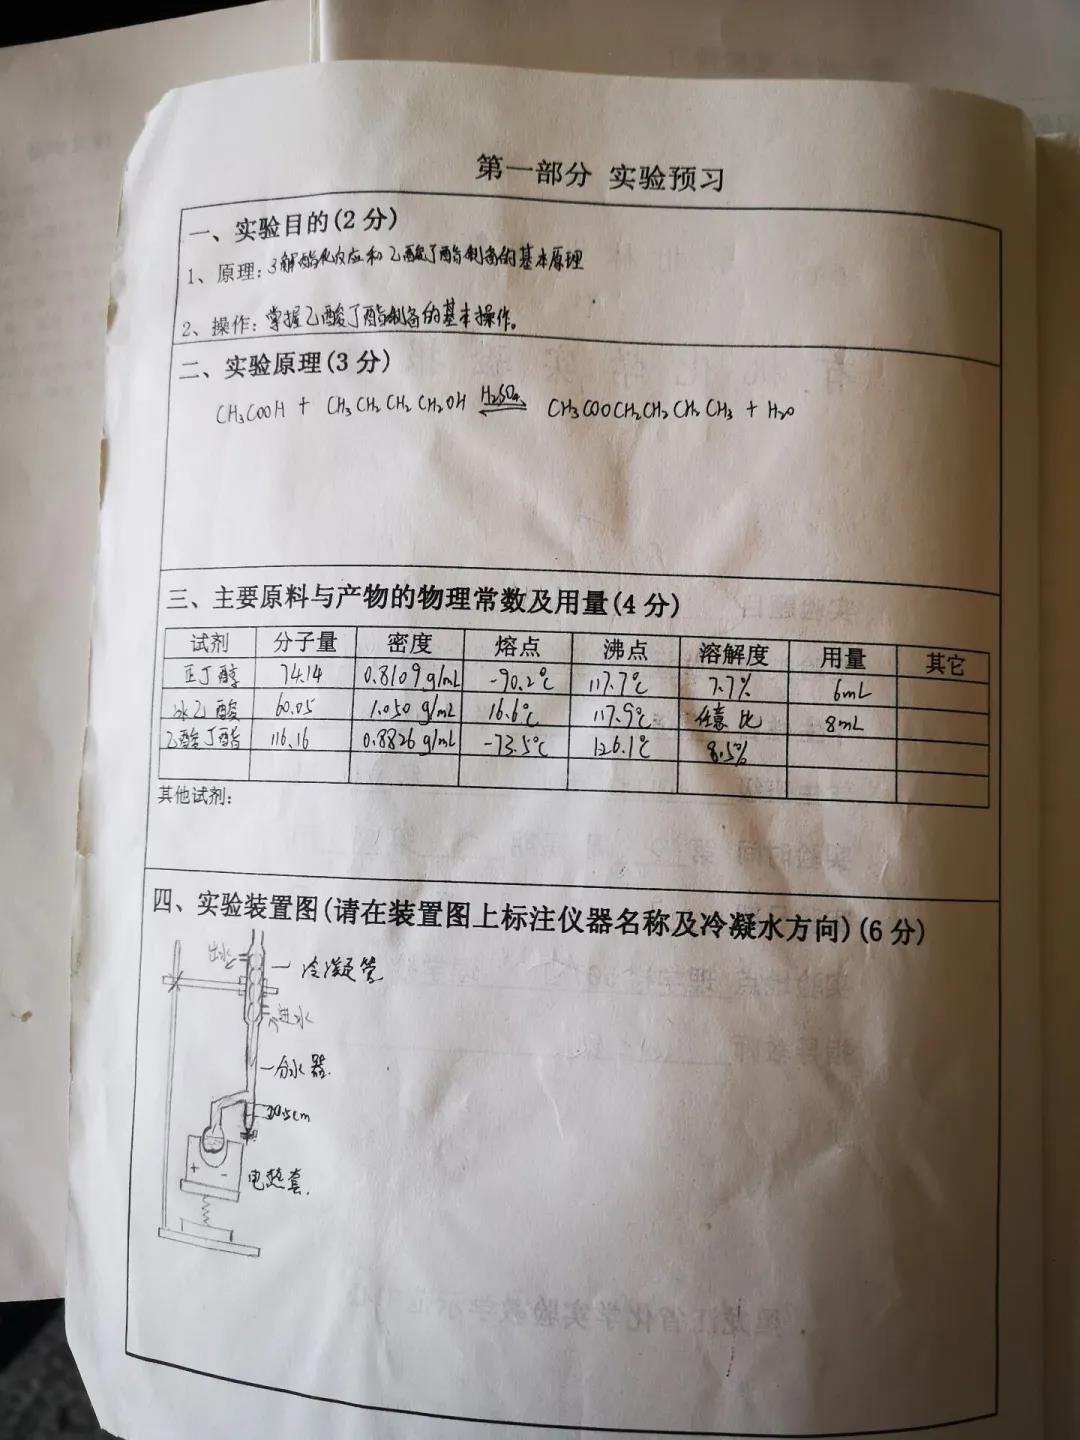 第一部分 实验预习
一、实验目的(2分)
1、原理:了解酯化反应和乙酸丁酯制备的基本原理
2、操作:掌握乙酸丁酯制备的基本操作。
二、实验原理(3分)
CH₃COOH + CH₃CH₂CH₂CH₂OH H₂SO₄ ⇌ CH₃COOCH₂CH₂CH₂CH₃ + H₂O
三、主要原料与产物的物理常数及用量(4分)
试剂 分子量 密度 熔点 沸点 溶解度 用量 其它
正丁醇 74.14 0.8109g/mL -90.2℃ 117.7℃ 7.7% 6mL
冰乙酸 60.05 1.050 g/mL 16.6℃ 117.9℃ 任意比 8mL
乙酸丁酯 116.16 0.8826g/mL -73.5℃ 126.1℃ 8.5%
其他试剂:
四、实验装置图(请在装置图上标注仪器名称及冷凝水方向)(6分)
出水
冷凝管
进水
分水器
电热套.